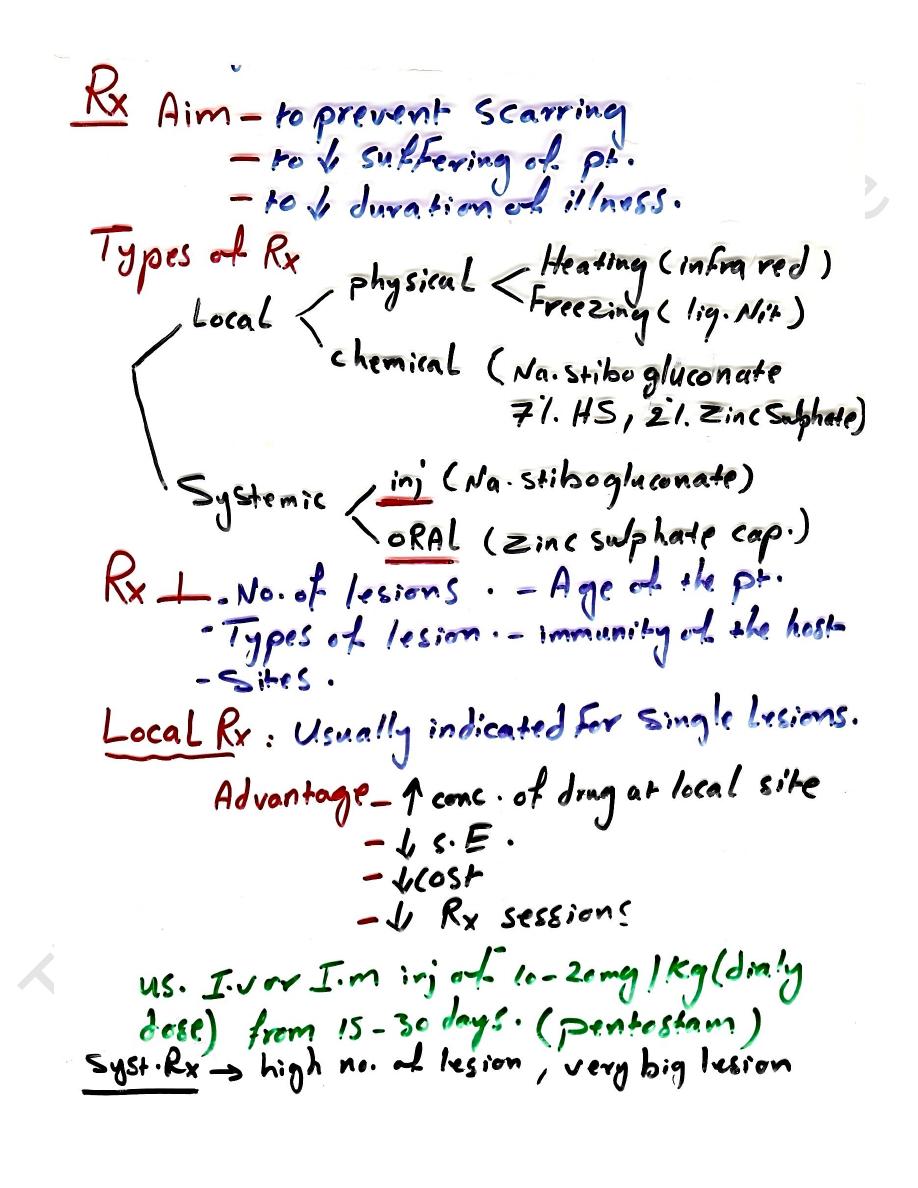 Rx Aim - to prevent scarring
- to ↓ suffering of pt.
- to ↓ duration of illness.
Types of Rx
Local < physical < Heating (infra red)
Freezing (liq. Nit)
chemical (Na. stibogluconate
7% HS, 2% Zinc Sulphate)
Systemic < inj (Na. stibogluconate)
ORAL (Zinc sulphate cap.)
Rx ⊥ - No. of lesions . - Age of the pt.
- Types of lesion . - immunity of the host
- Sites .
Local Rx : Usually indicated for Single Lesions.
Advantage - ↑ conc. of drug at local site
- ↓ S.E .
- ↓ cost
- ↓ Rx sessions
us. I.v or I.m inj of 10-20mg/Kg (dialy
dose) from 15-30 days. (pentostam)
Syst. Rx → high no. of lesion, very big lesion